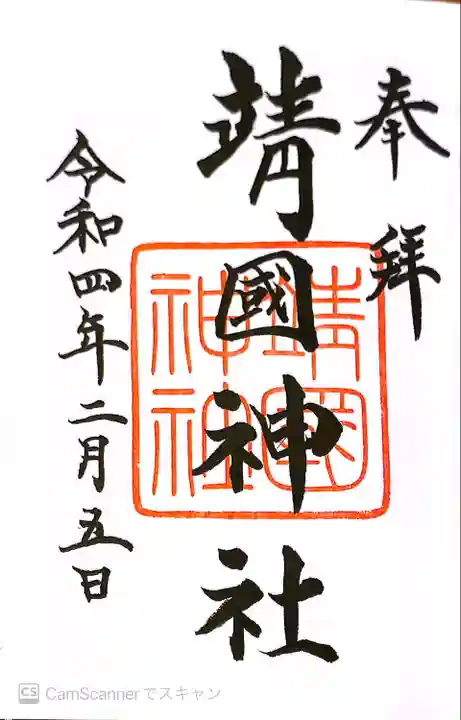 奉拝
靖國神社
靖國
神社
令和四年二月五日
CS CamScannerでスキャン